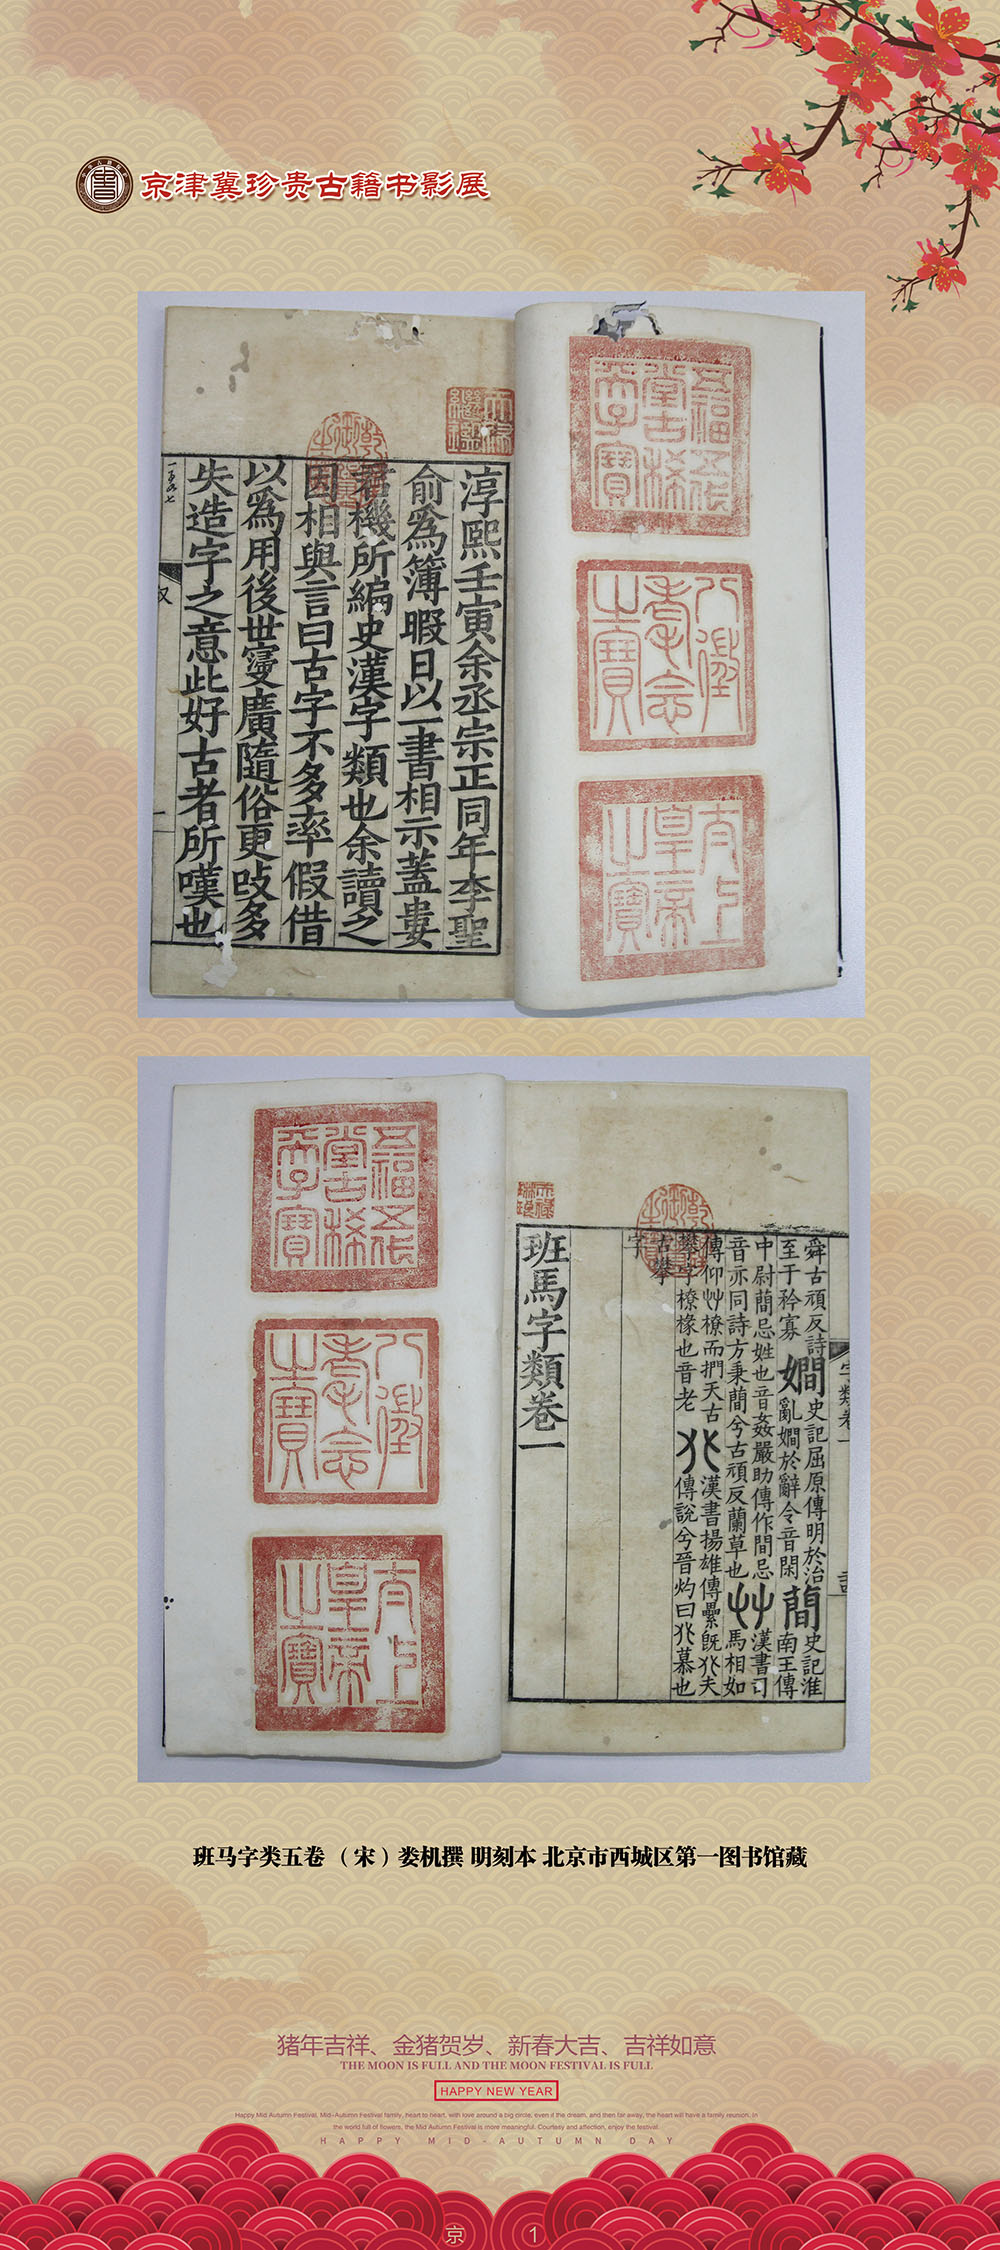 京津冀珍贵古籍书影展
五福五代
堂古稀
天子寶
八徵
耄念
之寶
太上
皇帝
之寶
淳熙壬寅余丞宗正同年李聖
俞為簿暇日以一書相示蓋婁
君機所編史漢字類也余讀之
因相與言曰古字不多率假借
以為用後世寖廣隨俗更改多
失造字之意此好古者所嘆也
五福五代
堂古稀
天子寶
八徵
耄念
之寶
太上
皇帝
之寶
字類卷一
舜古頑反詩
至于矜寡
嫺
史記屈原傳明於治
亂嫺於辭令音閑
蕑
史記淮
南王傳
中尉蕑忌姓也音姦嚴助傳作間忌
音亦同詩方秉蕑兮古頑反蘭草也
艸
漢書司
馬相如
傳仰艸橑而捫天古
攀字橑椽也音老
㸚
漢書揚雄傳纍既㸚夫
傳說兮晉灼曰㸚慕也
古攀
字
班馬字類卷一
班马字类五卷 （宋）娄机撰 明刻本 北京市西城区第一图书馆藏
猪年吉祥、金猪贺岁、新春大吉、吉祥如意
THE MOON IS FULL AND THE MOON FESTIVAL IS FULL
HAPPY NEW YEAR
Happy Mid Autumn Festival, Mid-Autumn Festival family, heart to heart, with love around a big circle, even if the dream, and then far away, the heart will have a family reunion. In
the world full of flowers, the Mid Autumn Festival is more meaningful. Courtesy and affection, enjoy the festival.
HAPPY MID-AUTUMN DAY
京 1